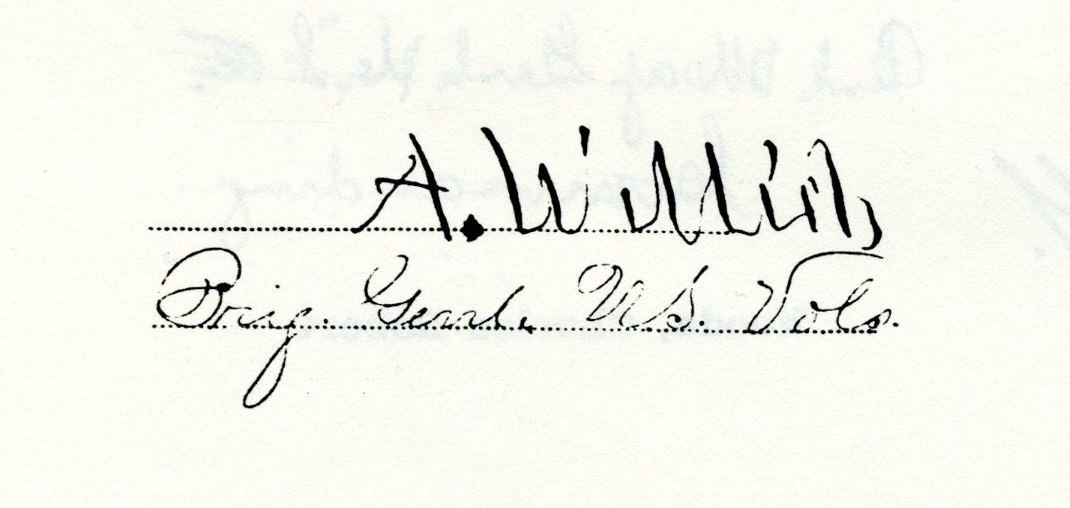 A. Willich,
Brig. Genl. U.S. Vols.